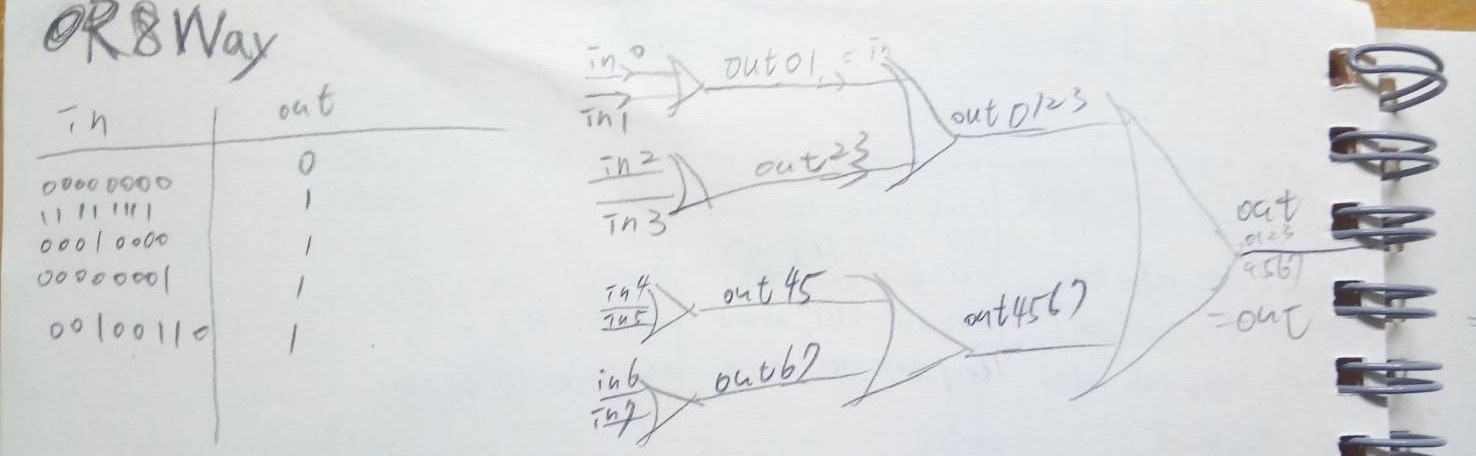 OR8Way
in out
00000000 0
11111111 1
00010000 1
00000001 1
00100110 1
in0
in1
out01 = in
in2
in3
out23
out0123
in4
in5
out45
in6
in7
out67
out4567
out
0123
4567
=out